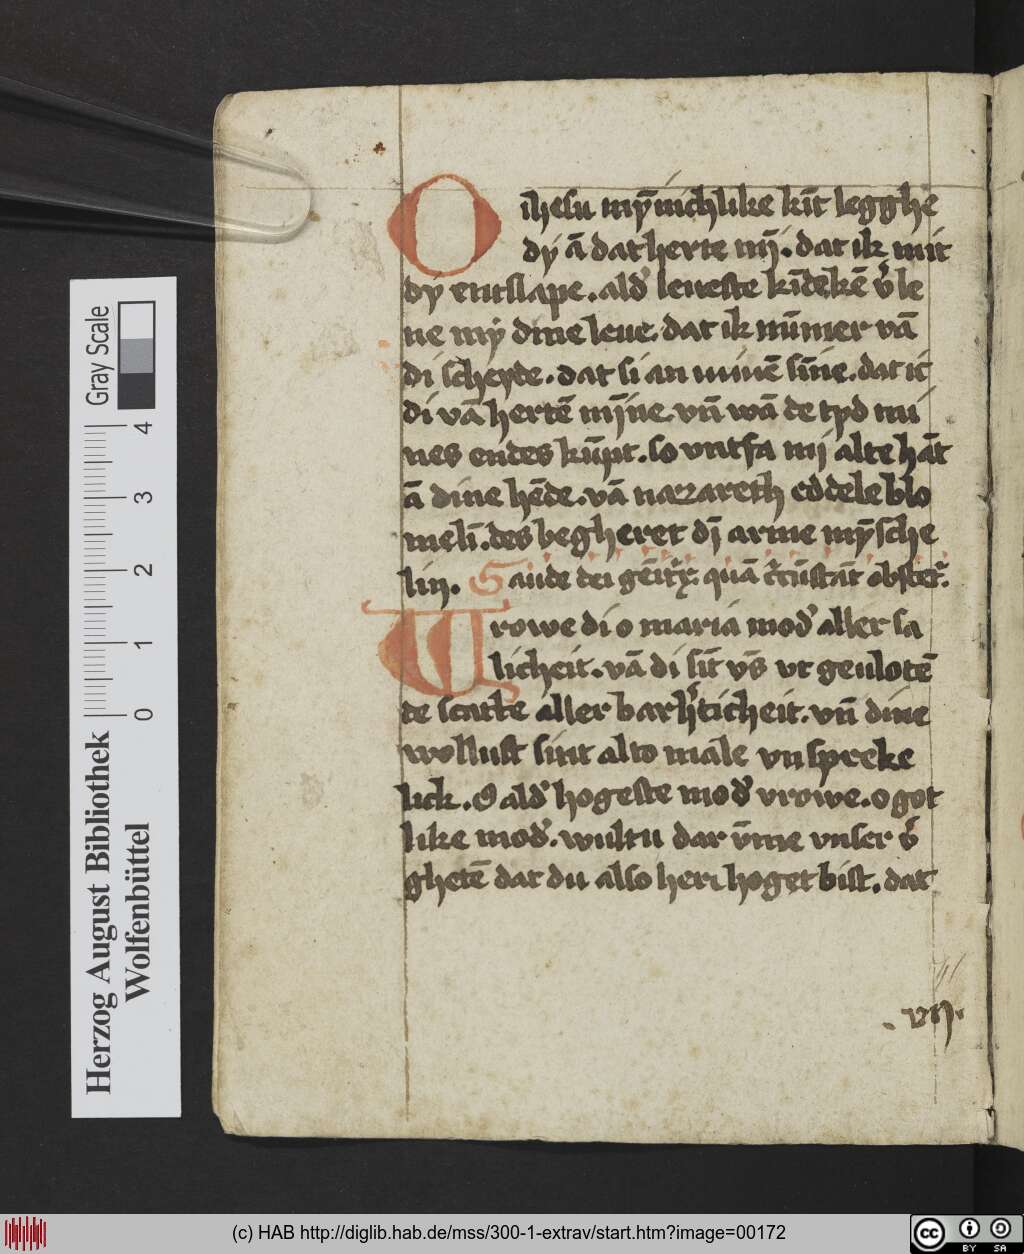 O ihesu mȳinchlike kīt legghe
dy ā dat herte mj̄. dat ik mit
dy entslape. ald' leueste kīdekē v'le
ne my dine leue. dat ik nūmer vā
di scheyde. dat si an minē sīne. dat ic
di vā hertē mȳne. vn̄ wā de tyd mi
nes endes kūpt. so vntfa mij alte hāt
ā dine hēde. vā nazareth eddele blo
melī. des begheret dȳ arme mȳsche
lin. Gaude dei gēit'x. quā c̄cūstāt obstet'.
Vrowe di o maria mod' aller sa
licheit. vā di sīt v̄s vt geulotē
de scatte aller barh'ticheit. vn̄ dine
wollust sint alto māle vnspreke
lick. O ald' hogeste mod' vrowe. o got
like mod'. wultu dar v̄me vnser v'
ghetē dat du also her hoget bist. dat
vij.
Herzog August Bibliothek
Wolfenbüttel
0 1 2 3 4
Gray Scale
(c) HAB http://diglib.hab.de/mss/300-1-extrav/start.htm?image=00172
cc BY SA